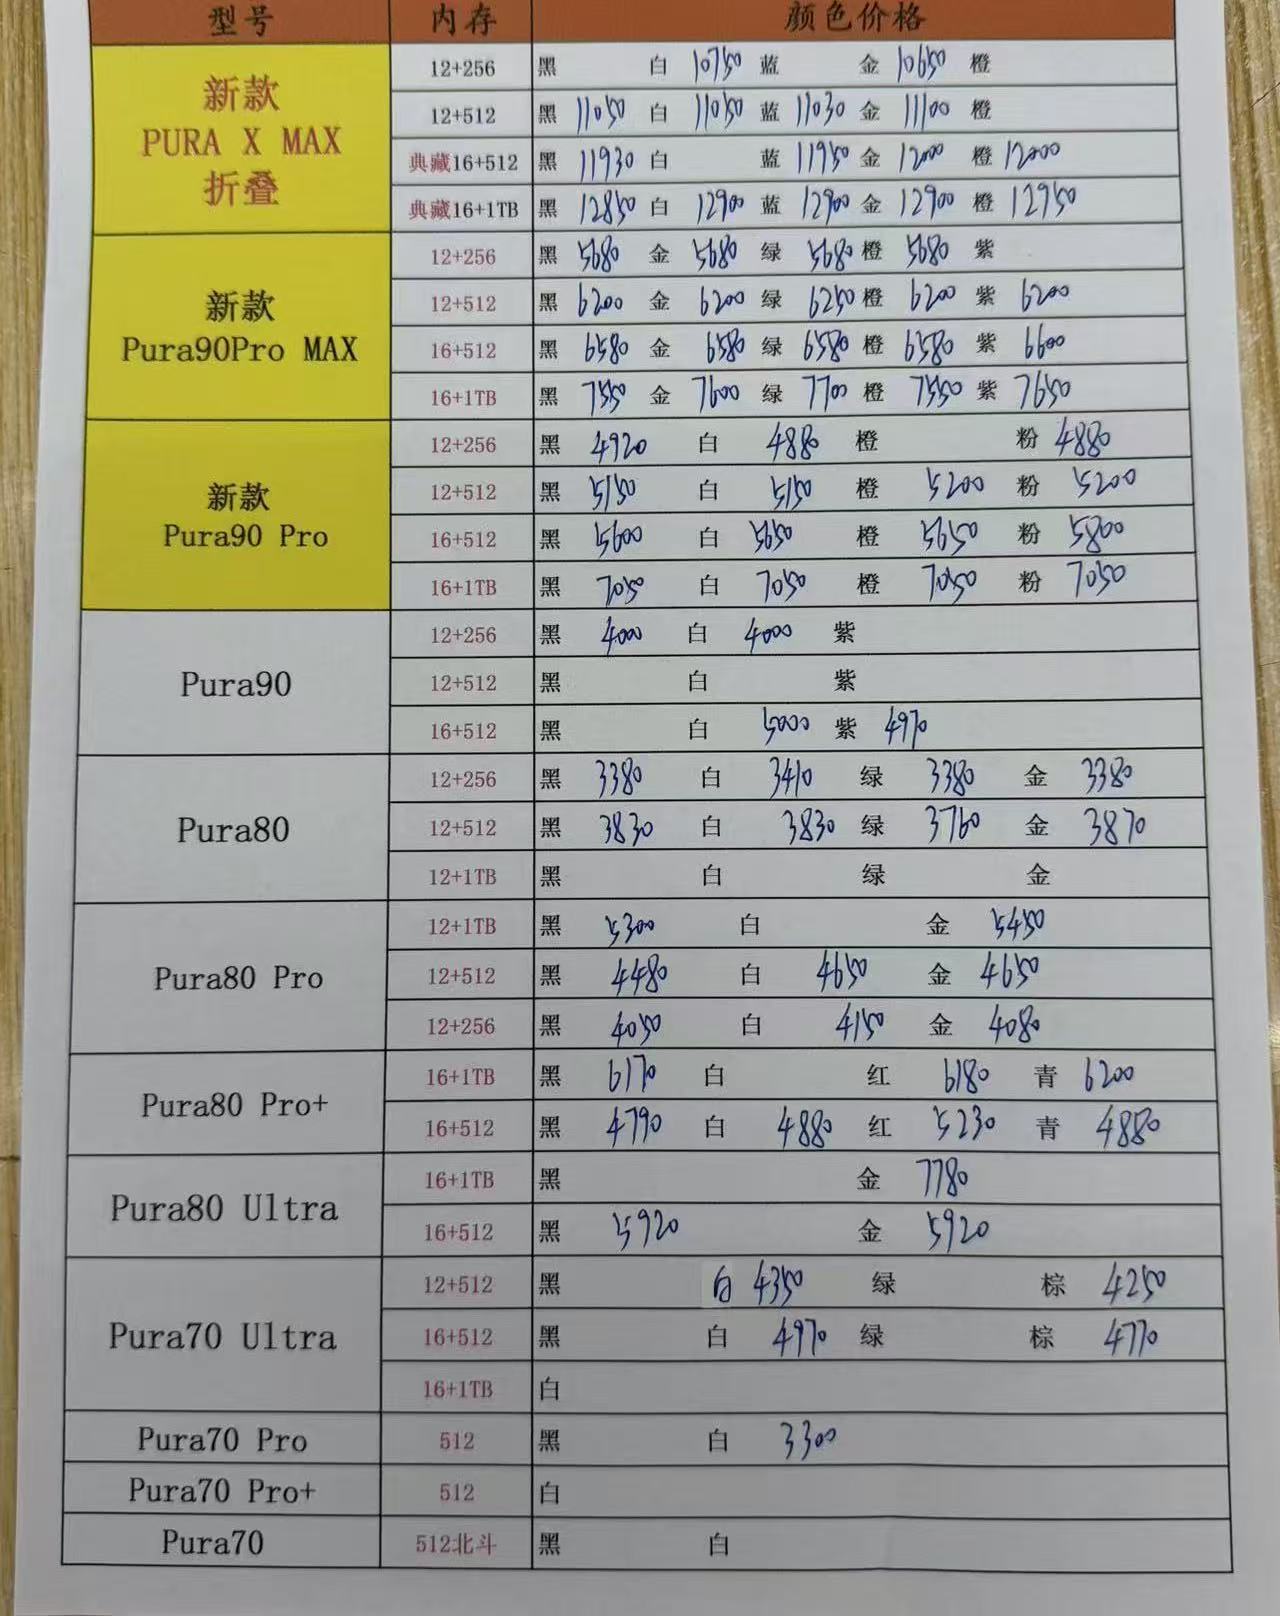 型号 内存 颜色价格
新款 PURA X MAX 折叠
12+256 黑 白 10750 蓝 金 10650 橙
12+512 黑 11050 白 11050 蓝 11030 金 11100 橙
典藏16+512 黑 11930 白 蓝 11950 金 12000 橙 12000
典藏16+1TB 黑 12850 白 12900 蓝 12900 金 12900 橙 12950
新款 Pura90Pro MAX
12+256 黑 5680 金 5680 绿 5680 橙 5680 紫
12+512 黑 6200 金 6200 绿 6250 橙 6200 紫 6200
16+512 黑 6580 金 6580 绿 6580 橙 6580 紫 6600
16+1TB 黑 7550 金 7600 绿 7700 橙 7550 紫 7650
新款 Pura90 Pro
12+256 黑 4920 白 4880 橙 粉 4880
12+512 黑 5150 白 5150 橙 5200 粉 5200
16+512 黑 5600 白 5950 橙 5950 粉 5800
16+1TB 黑 7050 白 7050 橙 7050 粉 7050
Pura90
12+256 黑 4000 白 4000 紫
12+512 黑 白 紫
16+512 黑 白 5000 紫 4970
Pura80
12+256 黑 3380 白 3410 绿 3380 金 3380
12+512 黑 3830 白 3830 绿 3760 金 3870
12+1TB 黑 白 绿 金
Pura80 Pro
12+1TB 黑 5300 白 金 5450
12+512 黑 4480 白 4650 金 4650
12+256 黑 4050 白 4150 金 4080
Pura80 Pro+
16+1TB 黑 6170 白 红 6180 青 6200
16+512 黑 4790 白 4880 红 5230 青 4880
Pura80 Ultra
16+1TB 黑 金 7780
16+512 黑 5920 金 5920
Pura70 Ultra
12+512 黑 白 4350 绿 棕 4250
16+512 黑 白 4970 绿 棕 4770
16+1TB 白
Pura70 Pro 512 黑 白 3300
Pura70 Pro+ 512 白
Pura70 512北斗 黑 白